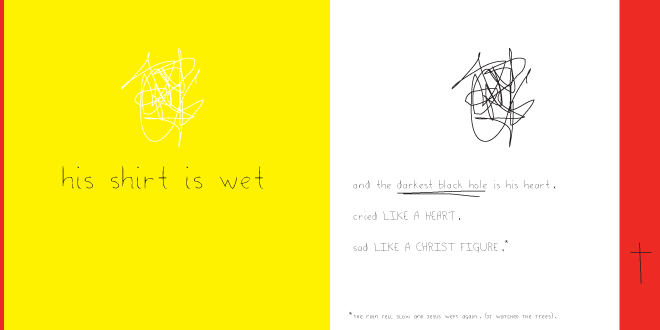 his shirt is wet
and the darkest black hole is his heart.
cried LIKE A HEART.
sad LIKE A CHRIST FIGURE.*
*THE RAIN FELL SLOW AND JESUS WEPT AGAIN. (IT WATCHED THE TREES).